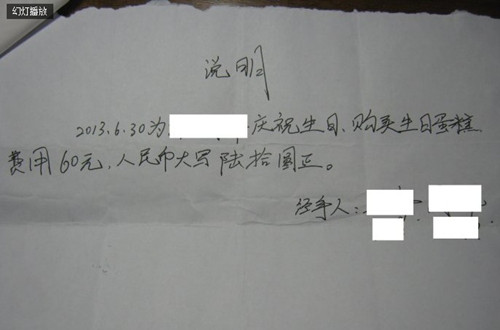 幻灯播放
说明
2013.6.30为 庆祝生日、购买生日蛋糕
费用60元,人民币大写陆拾圆正。
经手人: